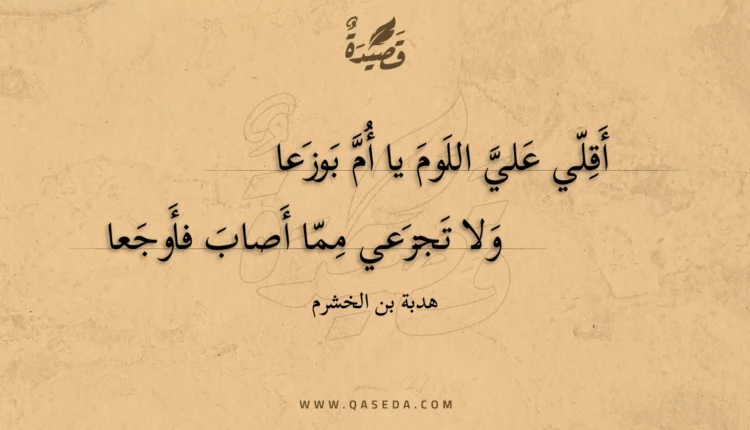 قَصِيْدَةٌ
أَقِلّي عَليَّ اللَومَ يا أُمَّ بَوزَعا
وَلا تَجزَعي مِمّا أَصابَ فأَوجَعا
هدبة بن الخشرم
WWW.QASEDA.COM